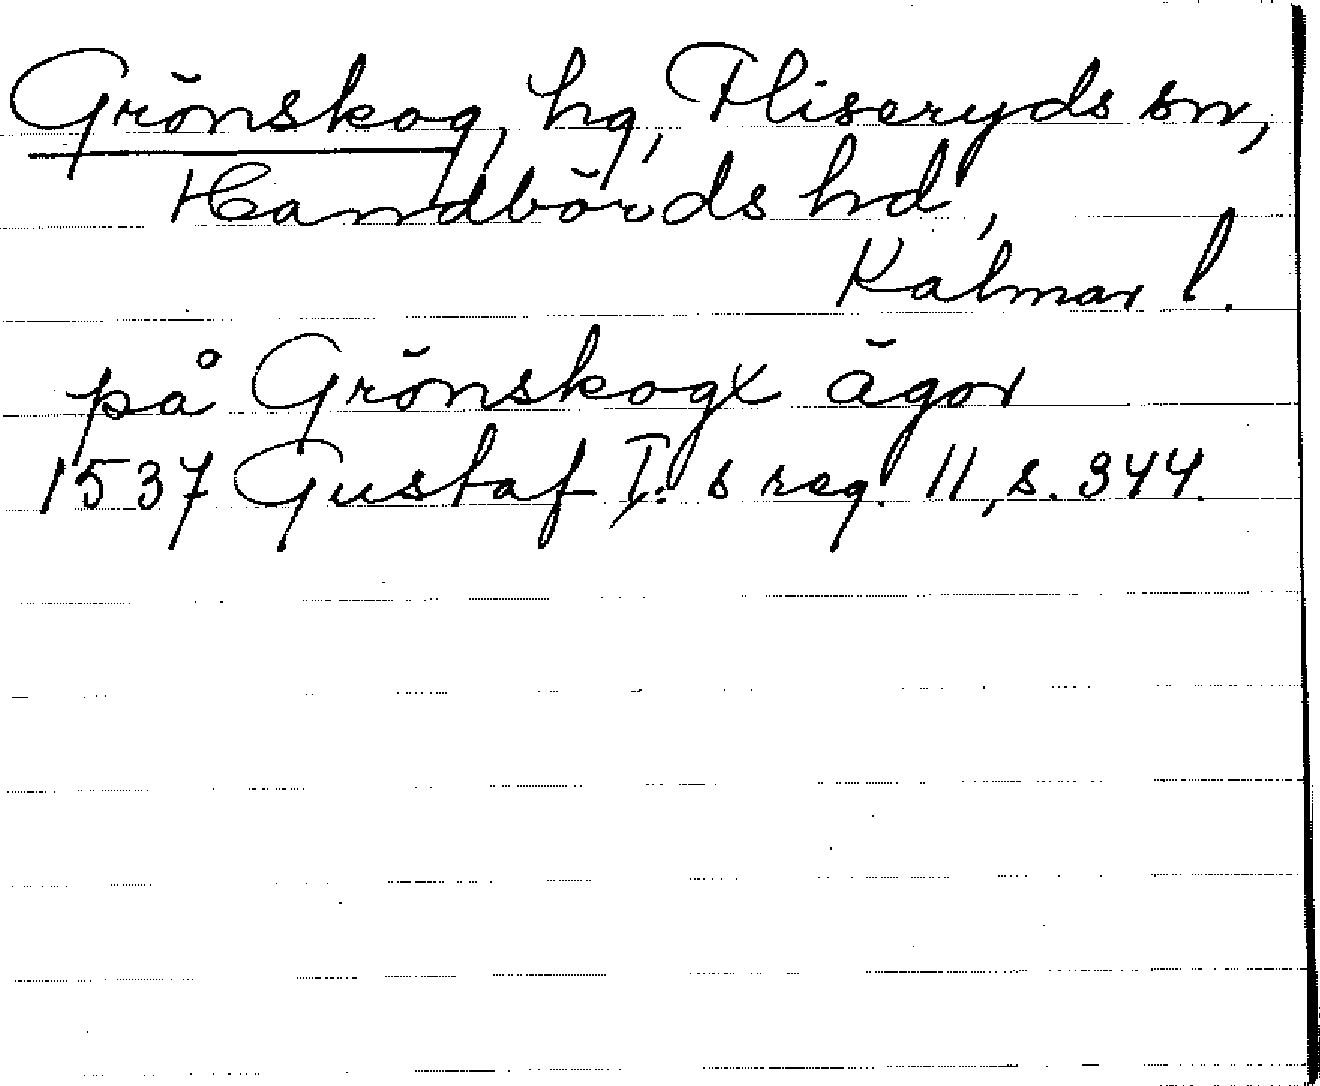 Grönskog, hg, Fliseryds sn,
Handbörds hd,
Kalmar l.
på Grönskogx ägor
1537 Gustaf I:s reg. 11, s. 344.